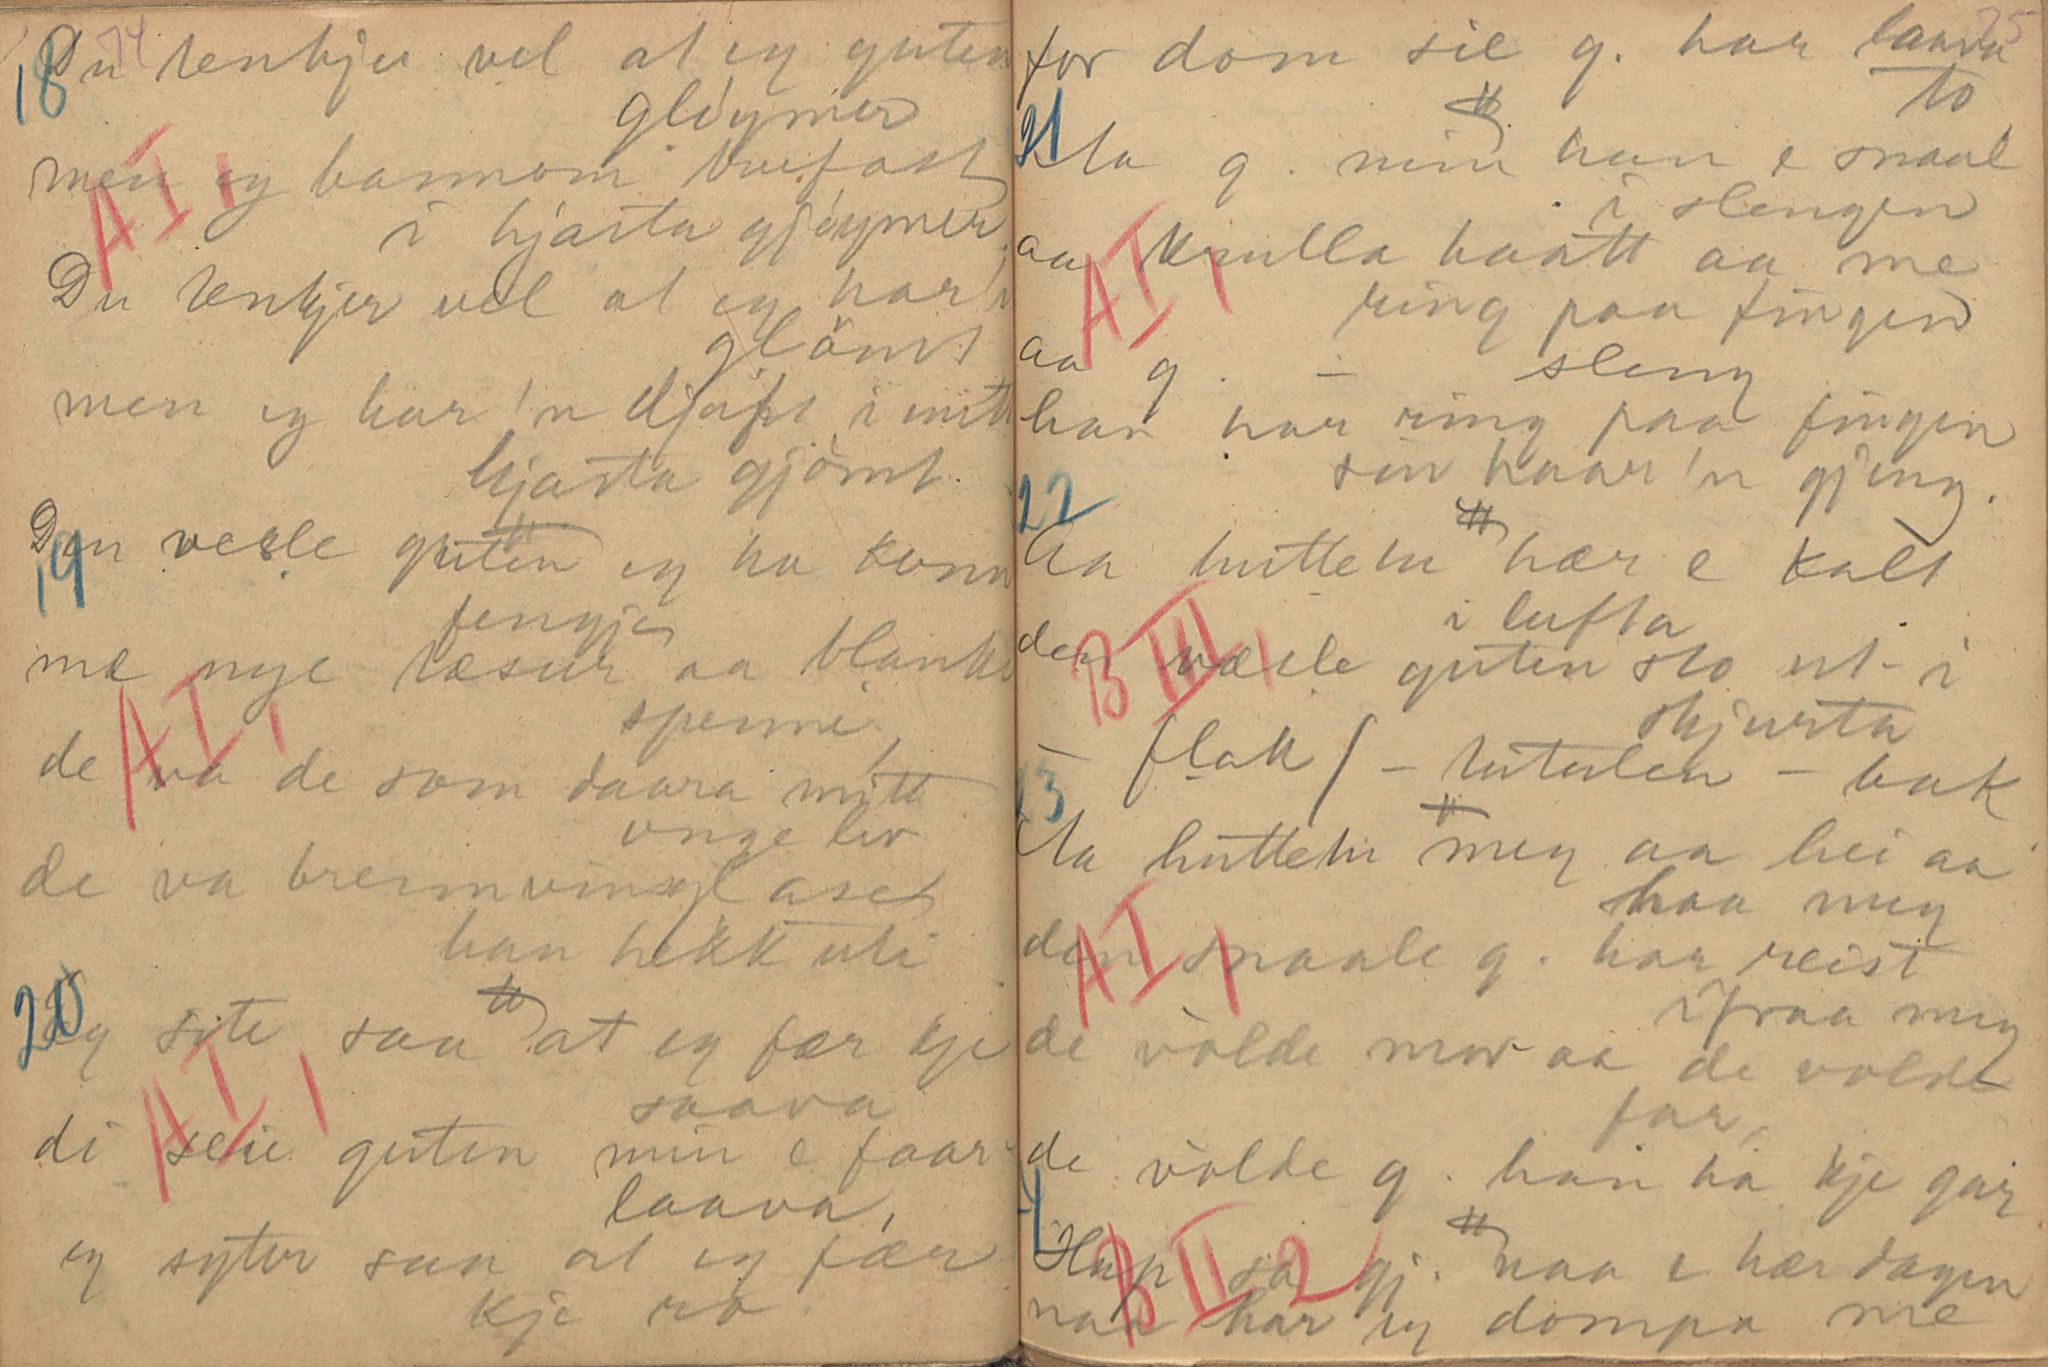 74
18
Du tenkjer vel at eg guten
gløymer
men eg barmom trufast
i hjarta gjøymer.
AI,1
Du tenkjer vel at eg har'n
glömt
men eg har 'n djupt i mitt
hjarta gjömt.
19
Den vesle guten eg ha kunn
fengje
mæ nye tæsur aa blanke
AI,1
spenne,
de va de som daara mitt
unge liv
de va brennvinsglaset
han hekk uti
20
Eg site saa at eg fær kje
saava
AI,1
di seie guten min e faar-
laava,
eg syter saa at eg fær
kje ro
75
for dom sie g. har laava
to
21
Aa g. min han e snaal
i slengen
aa krulla haatt aa me
AI,1
ring paa fingen
aa g. – sleng
han har ring paa fingen
sin haar 'n gjeng.
22
Aa huttetu hær e kalt
i lufta
den væsle guten sto ut i
BIII,1
skjurta
– flak / – tutulen – bak
23
Aa huttetu meg aa hei aa
haa meg
den snaale g. har reist
AI,1
ifraa meg
de volde mor aa de volde
far,
de volde g. han ha kje gar
4
Hup sa gj. naa e hær dagen
BII2
naa har eg dompa me